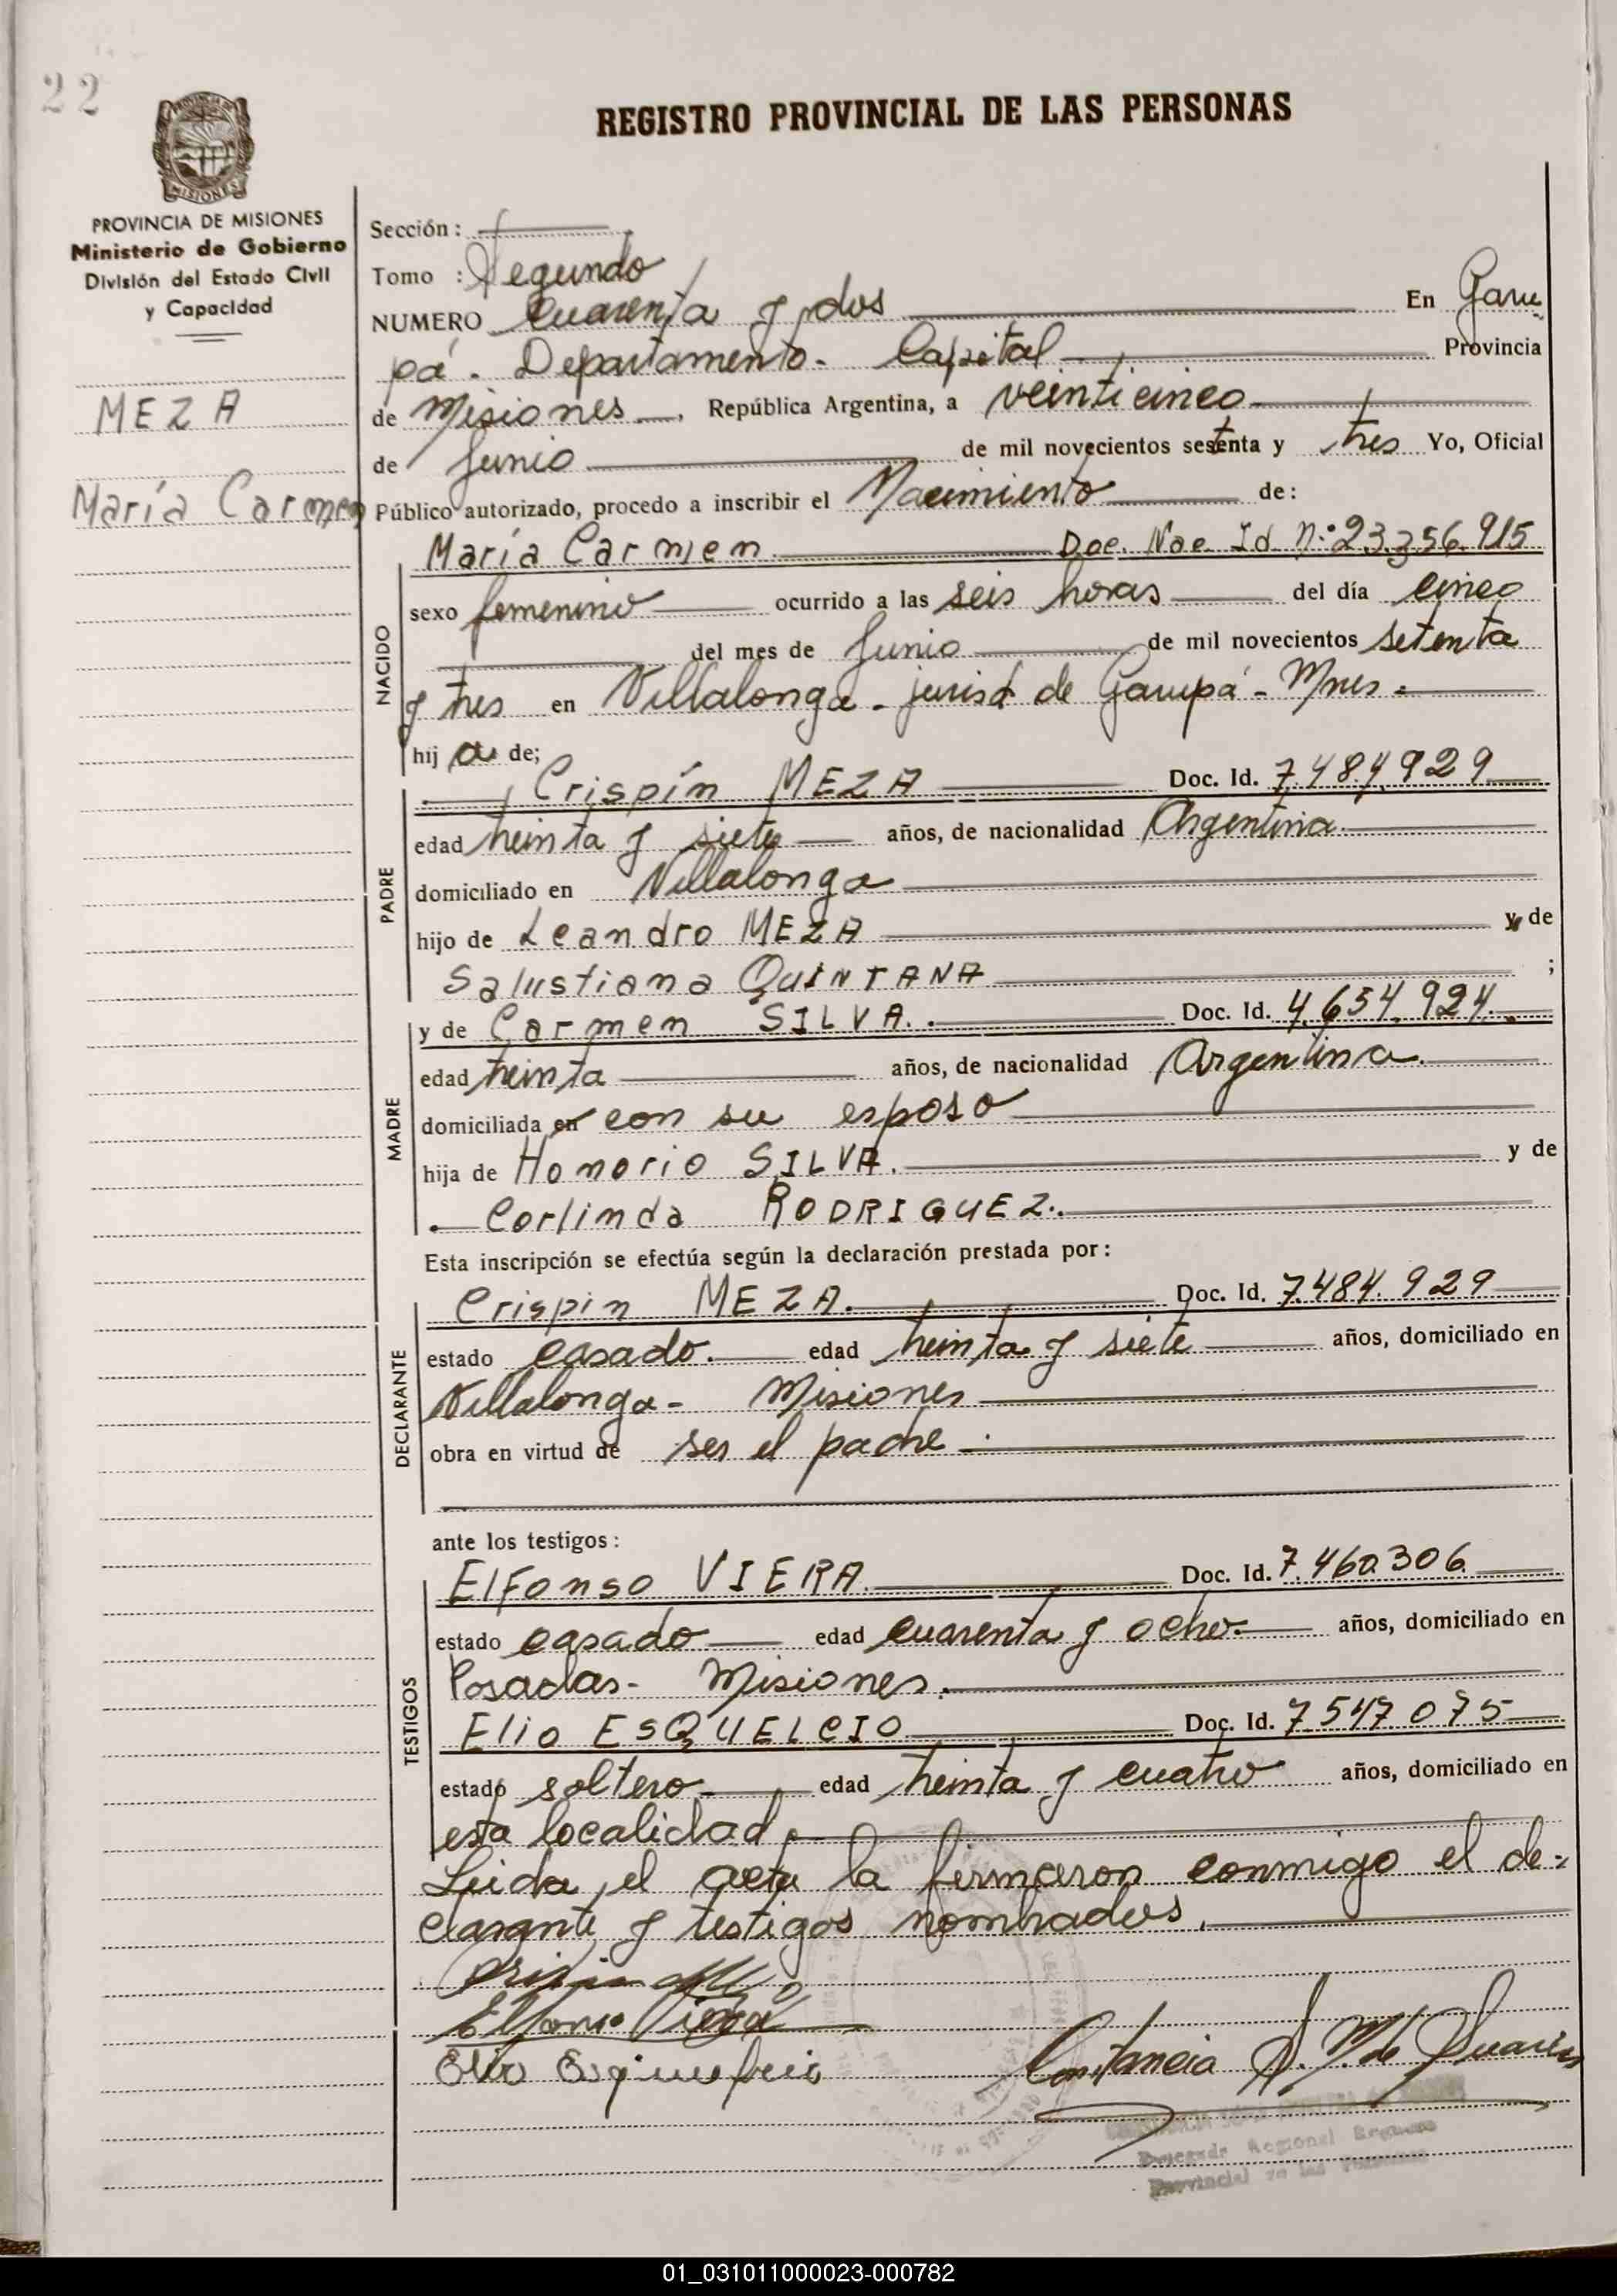 22
REGISTRO PROVINCIAL DE LAS PERSONAS
MISIONES
PROVINCIA DE MISIONES
Ministerio de Gobierno
División del Estado Civil
y Capacidad
MEZA
María Carmen
Sección :
Tomo : Segundo
NUMERO Cuarenta y dos En Garu
pá. Departamento. Capital Provincia
de Misiones, República Argentina, a veinticinco
de Junio de mil novecientos setenta y tres Yo, Oficial
Público autorizado, procedo a inscribir el Nacimiento de:
María Carmen Doc. Nac. Id N: 23.356.915
NACIDO
sexo femenino ocurrido a las seis horas del día cinco
del mes de Junio de mil novecientos setenta
y tres en Villalonga - jurisd. de Garupá - Mnes.
hija de;
PADRE
Crispín MEZA Doc. Id. 7.484.929
edad treinta y siete años, de nacionalidad Argentina
domiciliado en Villalonga
hijo de Leandro MEZA y de
Salustiana QUINTANA ;
MADRE
y de Carmen SILVA. Doc. Id. 4.654.924.
edad treinta años, de nacionalidad Argentina.
domiciliada en con su esposo
hija de Honorio SILVA. y de
Corlinda RODRIGUEZ.
Esta inscripción se efectúa según la declaración prestada por :
DECLARANTE
Crispin MEZA. Doc. Id. 7.484.929
estado casado. edad treinta y siete años, domiciliado en
Villalonga - Misiones
obra en virtud de ser el padre
ante los testigos :
TESTIGOS
Elfonso VIERA Doc. Id. 7.460.306
estado casado edad cuarenta y ocho. años, domiciliado en
Posadas - Misiones.
Elio ESQUELCIO Doc. Id. 7.547.075
estado soltero edad treinta y cuatro años, domiciliado en
esta localidad.
Leida, el acta la firmaron conmigo el de-
clarante y testigos nombrados.
Elfonso Viera
Elio
Constancia S. M. de Suarez
Delegada Regional Registro
Provincial de las Personas
01_031011000023-000782